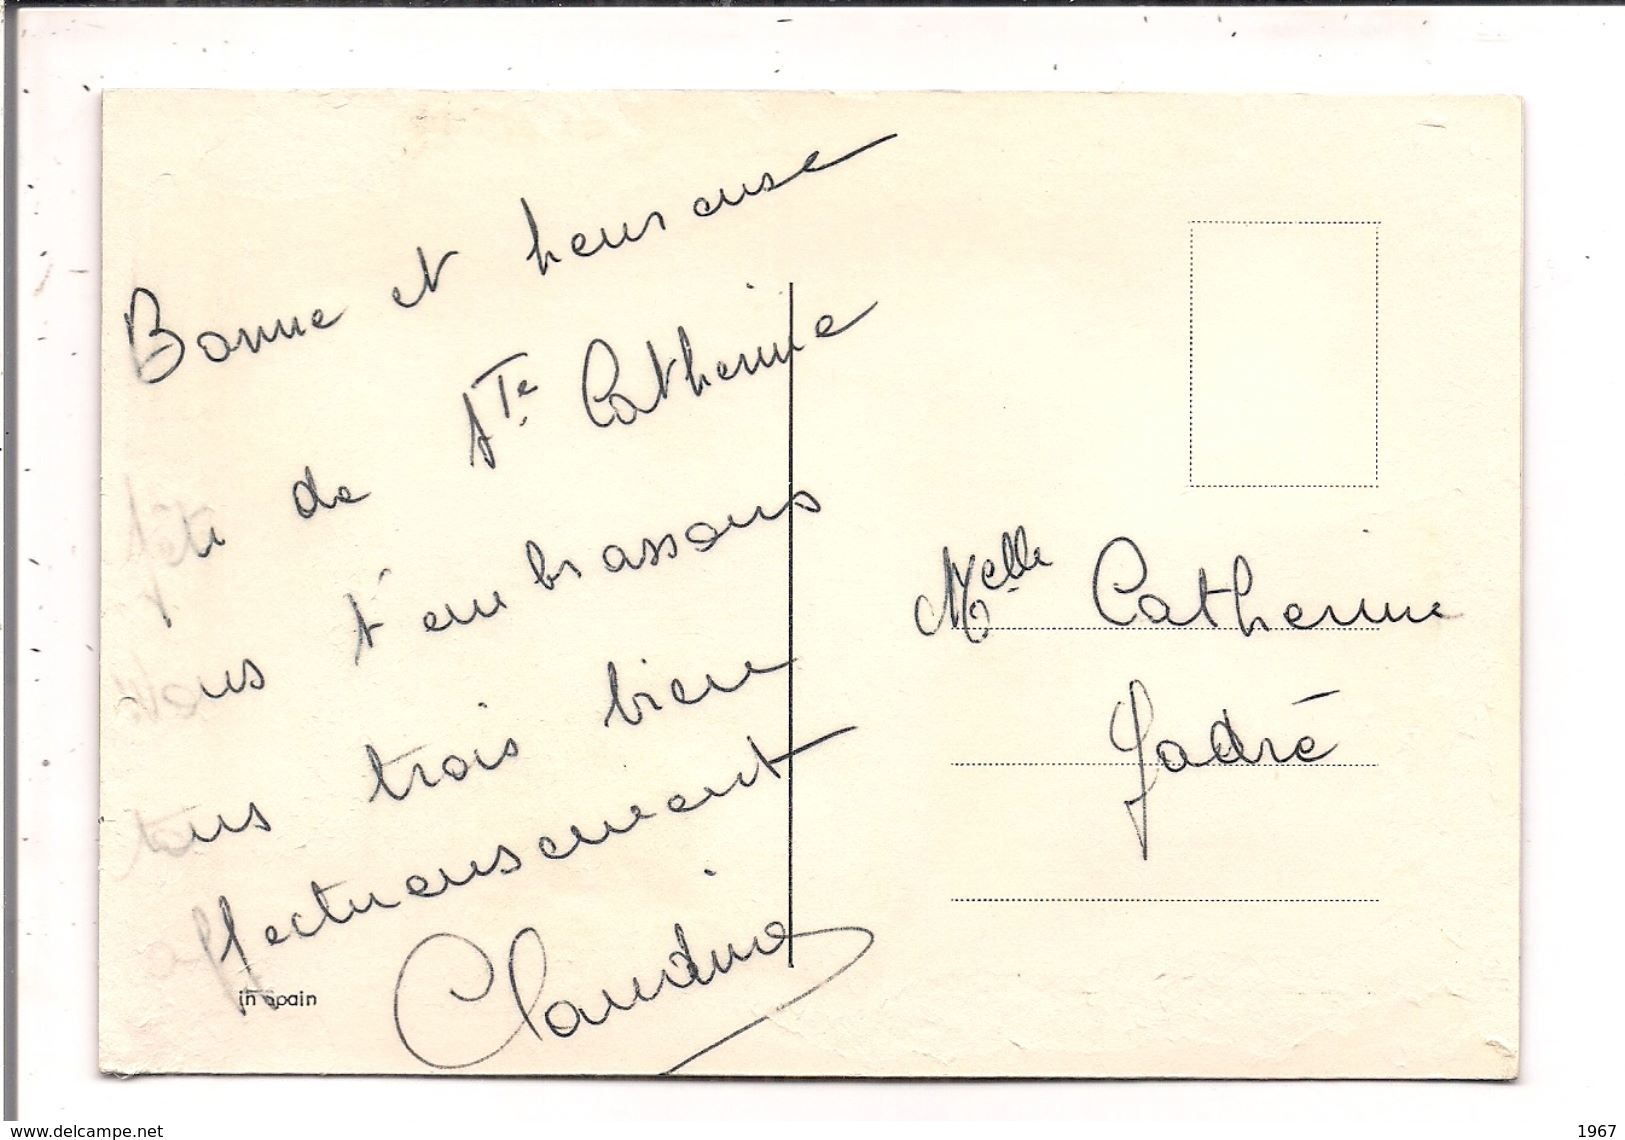 Bonne et heureuse
fête de Ste Catherine
nous t'embrassons
tous trois bien
affectueusement
Claudine
in spain
Melle Catherine
Jadré
www.delcampe.net
1967